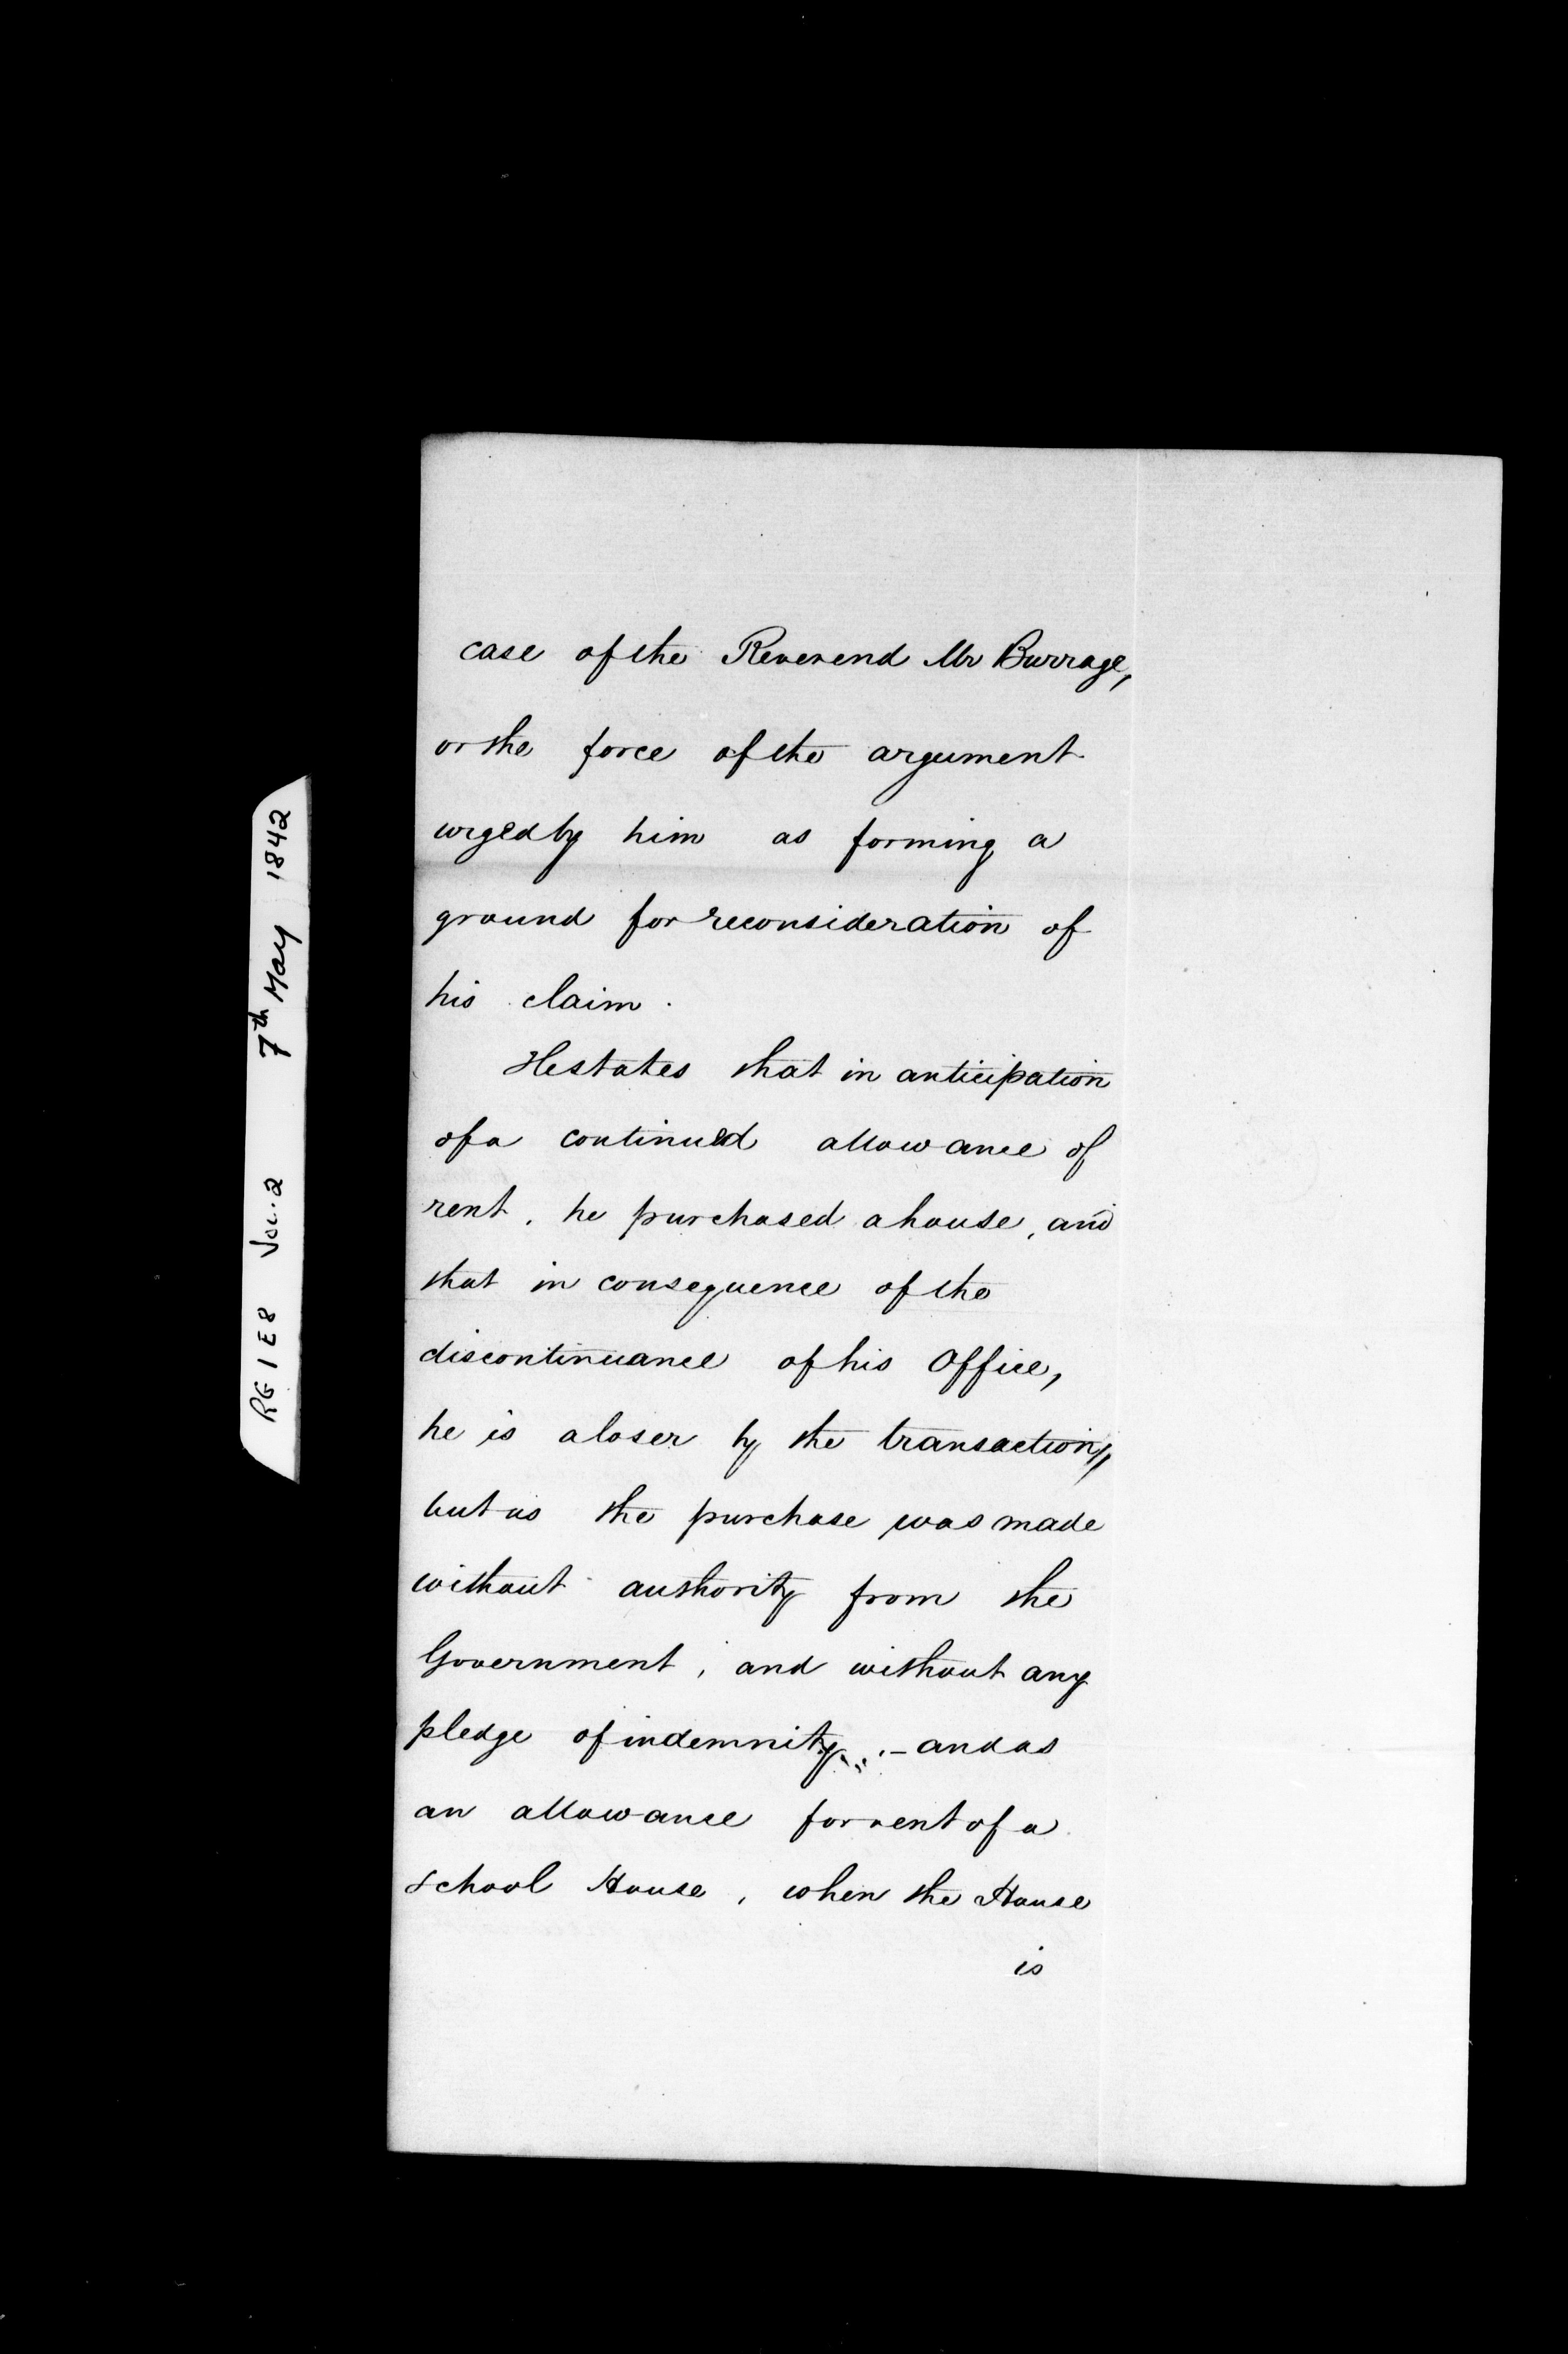 RG 1 E8 Vol. 2 7th May 1842
case of the Reverend Mr Burrage,
or the force of the argument
urged by him as forming a
ground for reconsideration of
his claim.
He states that in anticipation
of a continued allowance of
rent, he purchased a house, and
that in consequence of the
discontinuance of his Office,
he is a loser by the transaction,
but as the purchase was made
without authority from the
Government, and without any
pledge of indemnity, - and as
an allowance for rent of a
School House, when the House
is